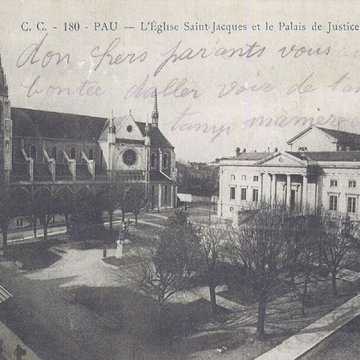 C. C. - 180 - PAU — L'Église Saint-Jacques et le Palais de Justice
don chers parants vous
bontee daller voir de